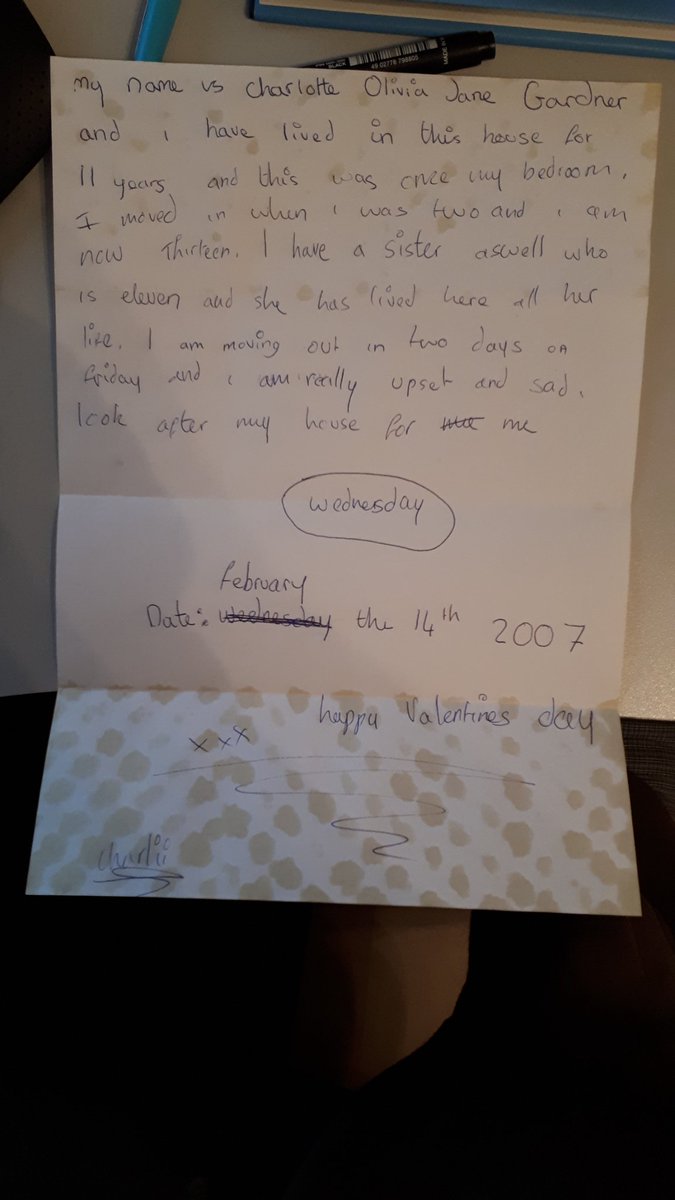 BLACK
49 02778 798805
MADE IN
my name is charlotte Olivia Jane Gardner
and i have lived in this house for
11 years and this was once my bedroom.
I moved in when i was two and i am
now Thirteen. I have a sister aswell who
is eleven and she has lived here all her
life. I am moving out in two days on
friday and i am really upset and sad.
look after my house for me
wednesday
february
Date: wednesday the 14th 2007
happy Valentines day
xxx
charlii